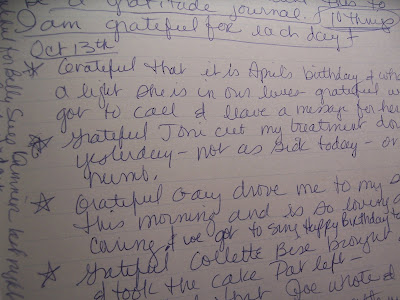 a gratitude journal. (10 things
I am grateful for each day)
Oct 13th
Grateful that it is April's birthday & what
a light she is in our lives grateful we
got to call & leave a message for her
Grateful Joni cut my treatment down
yesterday - not as sick today - or
numb.
Grateful Gary drove me to my
this morning and is so loving &
caring & we got to sing Happy Birthday to
Grateful Collette Bise brought
& took the cake Pat left -
that Joe wrote a